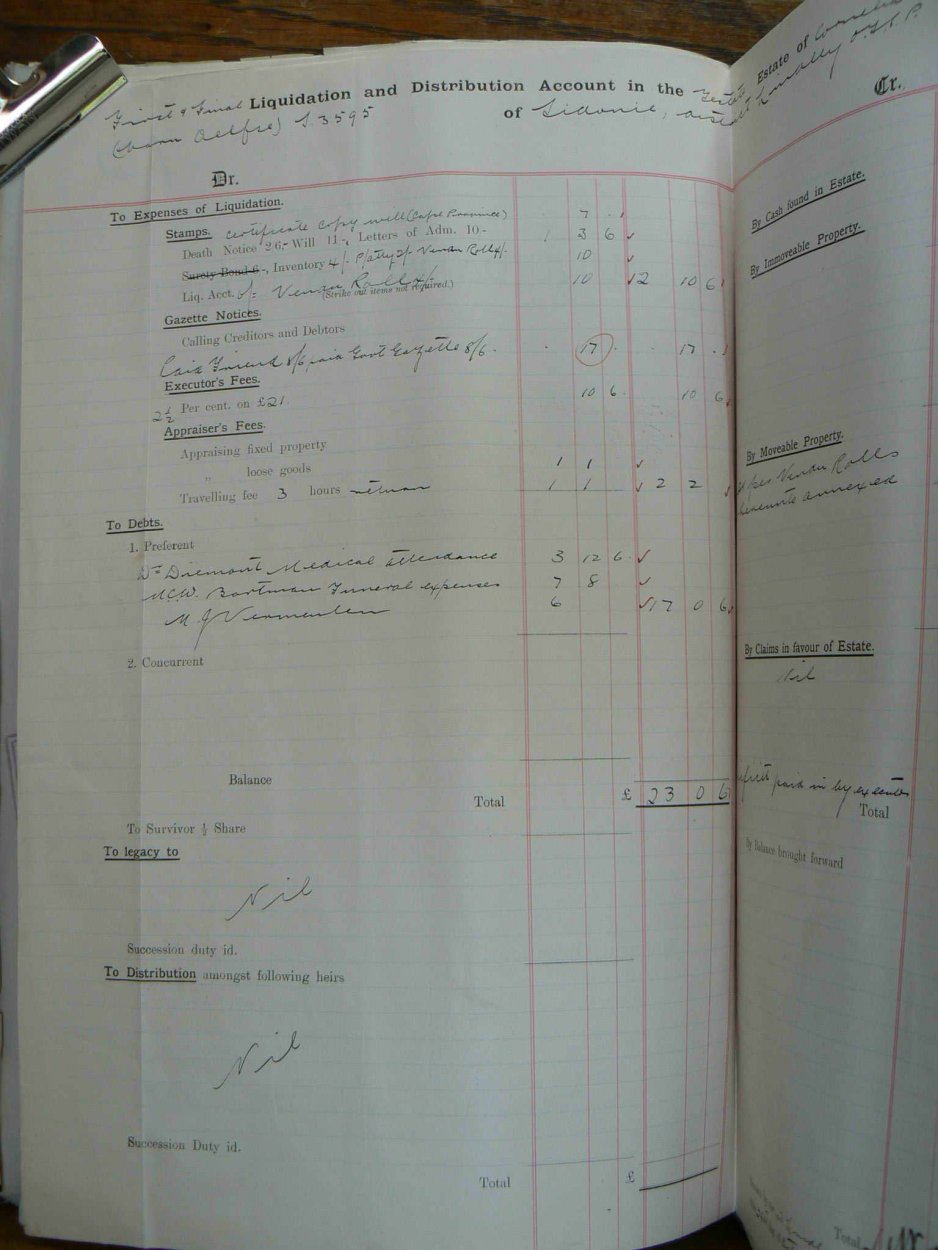 First & Final Liquidation and Distribution Account in the
(born Oelfse) S.3595 of Sidonie,
Dr.
To Expenses of Liquidation.
Stamps. certificate copy will (Cape Province) 7
Death Notice 2 6,- Will 11-, Letters of Adm. 10.- 1 3 6
Surety Bond 6 -, Inventory 4/- P/atty 2/- Vendu Roll 4/- 10
Liq. Acct. Vendu Roll 4/- 10 2 10 6
(Strike out items not required.)
Gazette Notices.
Calling Creditors and Debtors
Friend 8/6 Govt Gazette 8/6 - 17 17
Executor's Fees.
2½ Per cent. on £21. 10 6 10 6
Appraiser's Fees.
Appraising fixed property
„ loose goods 1 1
Travelling fee 3 hours return 1 1 2 2
To Debts.
1. Preferent
Dr Diemont Medical attendance 3 12 6
M.C.W. Bartman Funeral expenses 7 8
M J Vermeulen 6 17 0 6
2. Concurrent
Balance
Total £ 23 0 6
To Survivor ½ Share
To legacy to
Nil
Succession duty id.
To Distribution amongst following heirs
Nil
Succession Duty id.
Total £
Estate of
O.F.S. P.
Cr.
By Cash found in Estate.
By Immoveable Property.
By Moveable Property.
per Vendu Rolls
annexed
By Claims in favour of Estate.
Nil
paid in by executor
Total
By Balance brought forward
Total